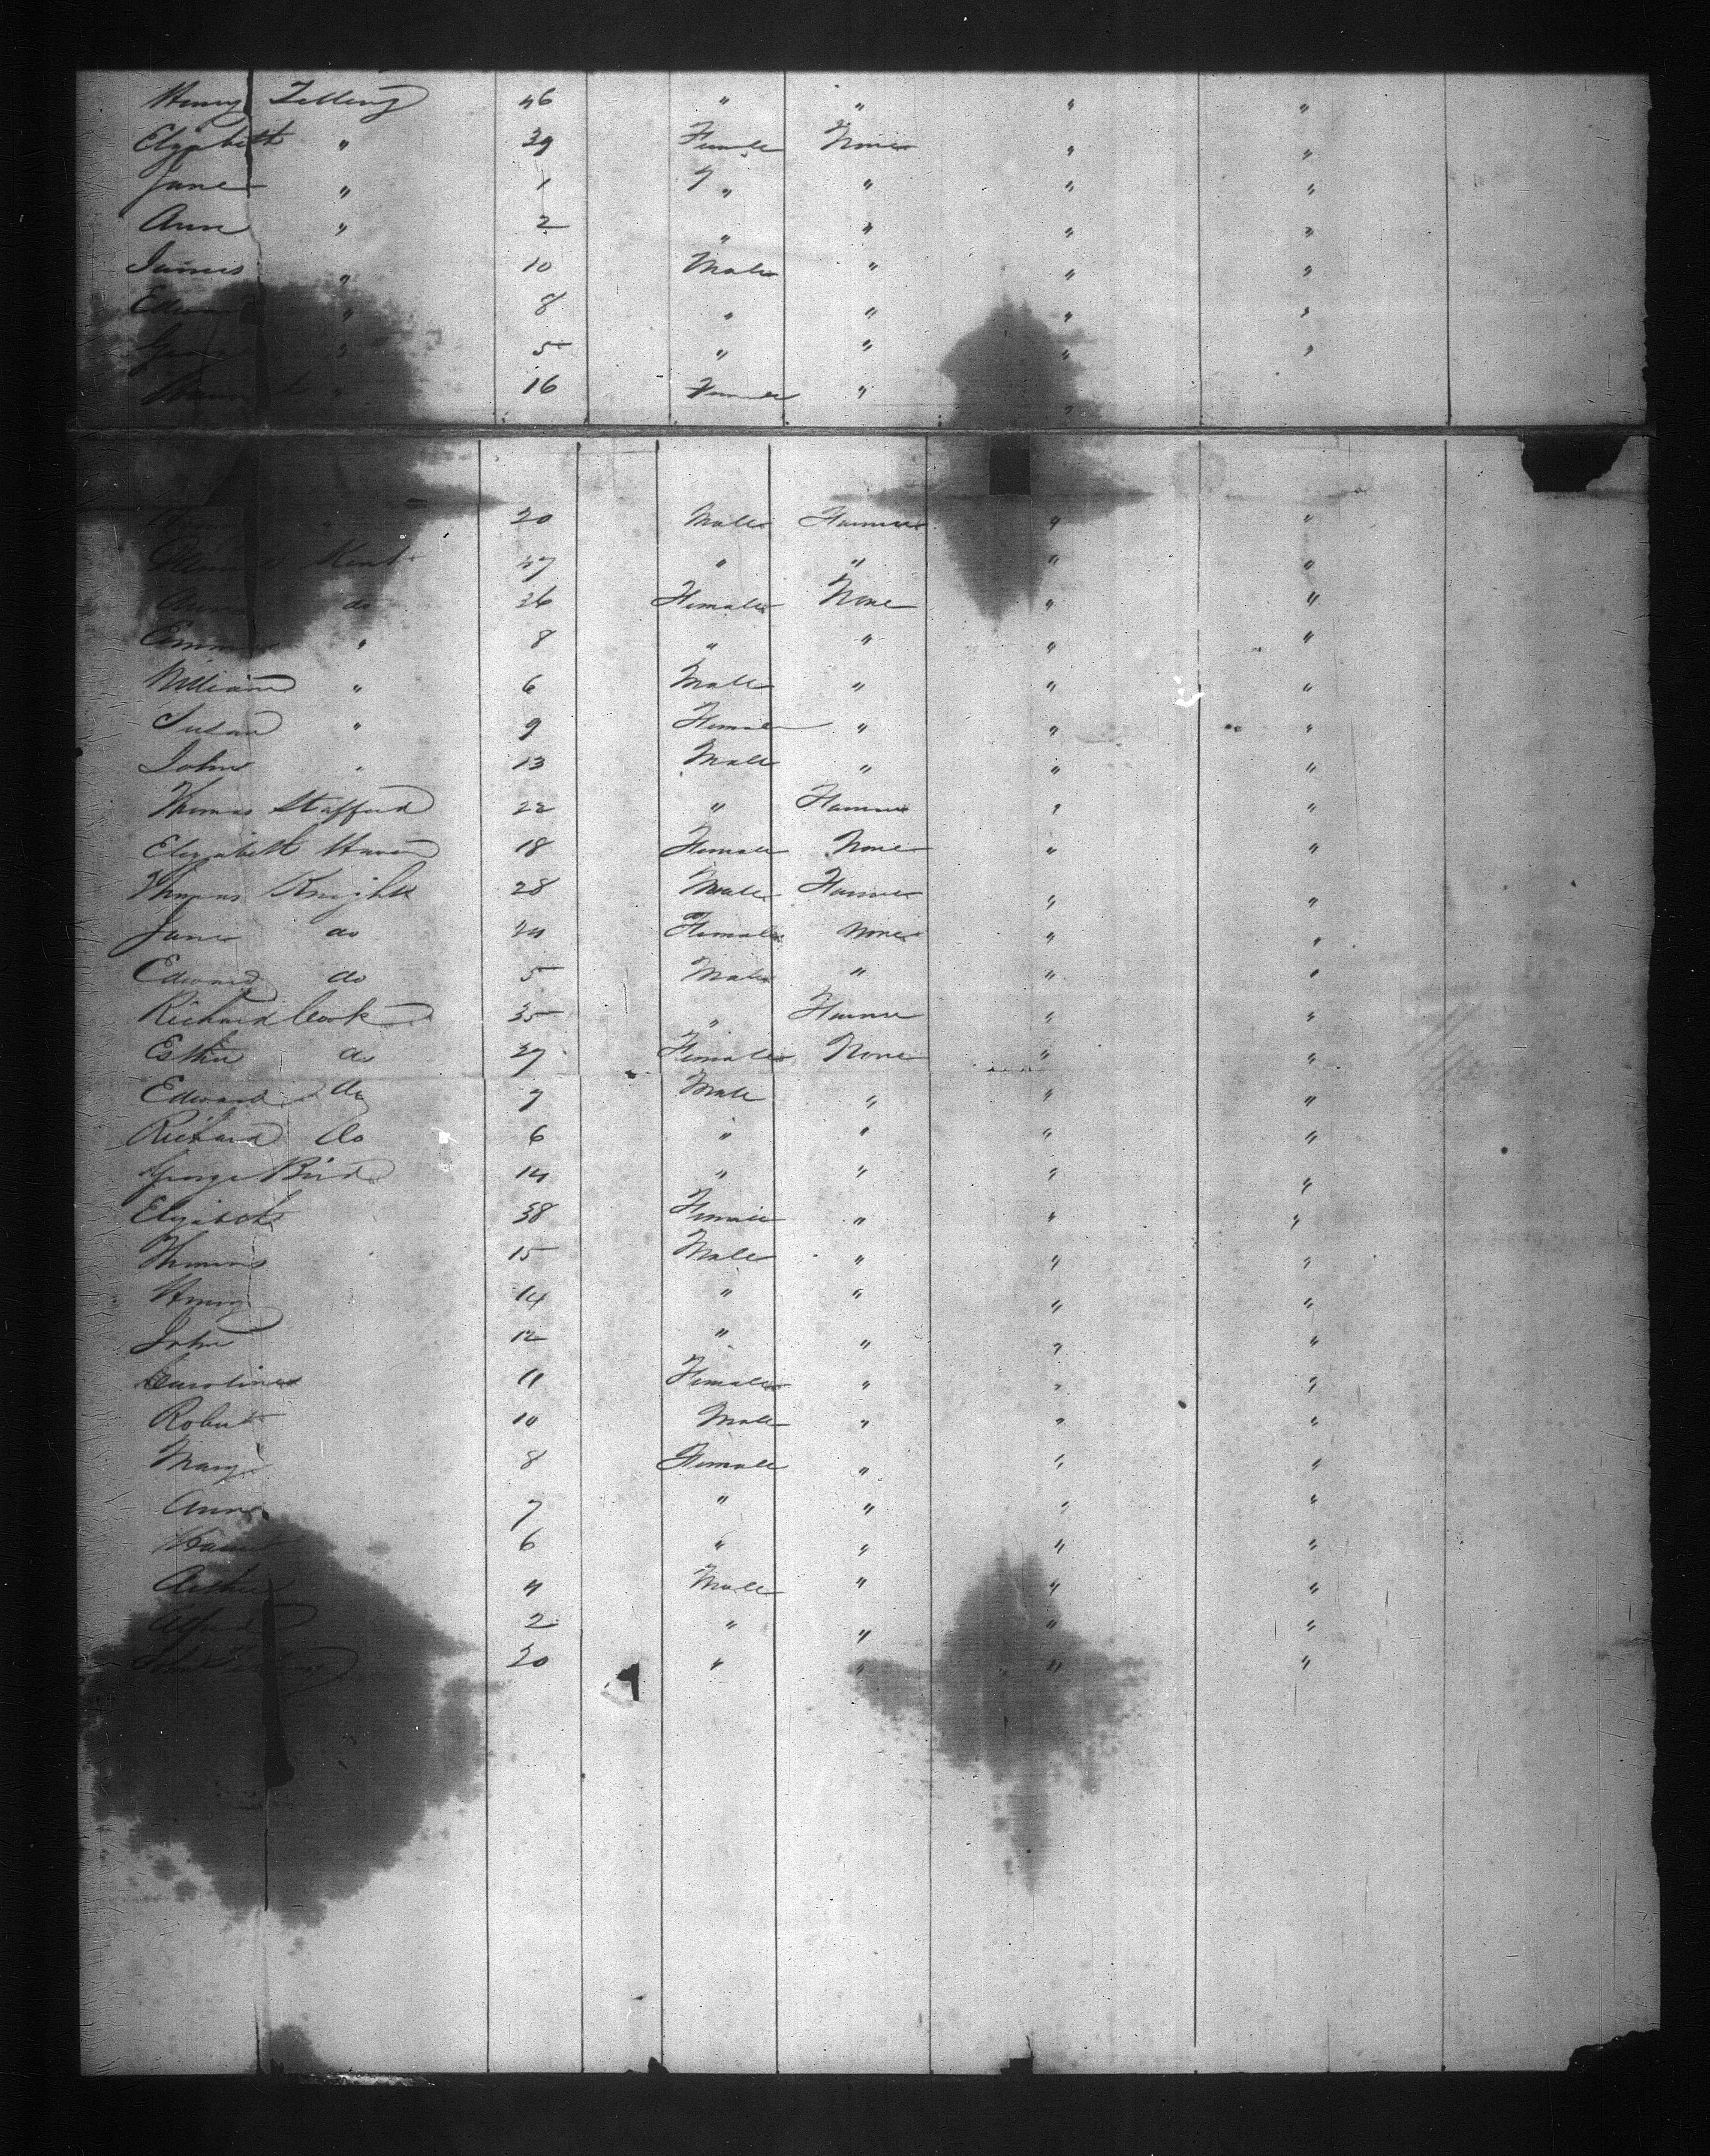 Henry Telling 46 " " " "
Elizabeth " 39 Female None " "
Jane " 1 " " " "
Ann " 2 " " " "
James " 10 Male " " "
Edwin " 8 " " " "
" 5 " " " "
" 16 Female " " "
20 Male Farmer " "
Kent 37 " " " "
Anna do 36 Female None " "
Emma " 8 " " " "
William " 6 Male " " "
Susan " 9 Female " " "
John " 13 Male " " "
Thomas Stafford 22 " Farmer " "
Elizabeth 18 Female None " "
Thomas Knight 28 Male Farmer " "
Jane do 24 Female None " "
Edward do 5 Male " " "
Richard Cook 35 " Farmer " "
Esther do 37 Female None " "
Edward do 7 Male " " "
Richard do 6 " " " "
George Bird 14 " " " "
Elizabeth 38 Female " " "
Thomas 15 Male " " "
Henry 14 " " " "
John 12 " " " "
Caroline 11 Female " " "
Robert 10 Male " " "
Mary 8 Female " " "
Anna 7 " " " "
Harriet 6 " " " "
Arthur 4 Male " " "
Alfred 2 " " " "
John 20 " " " "